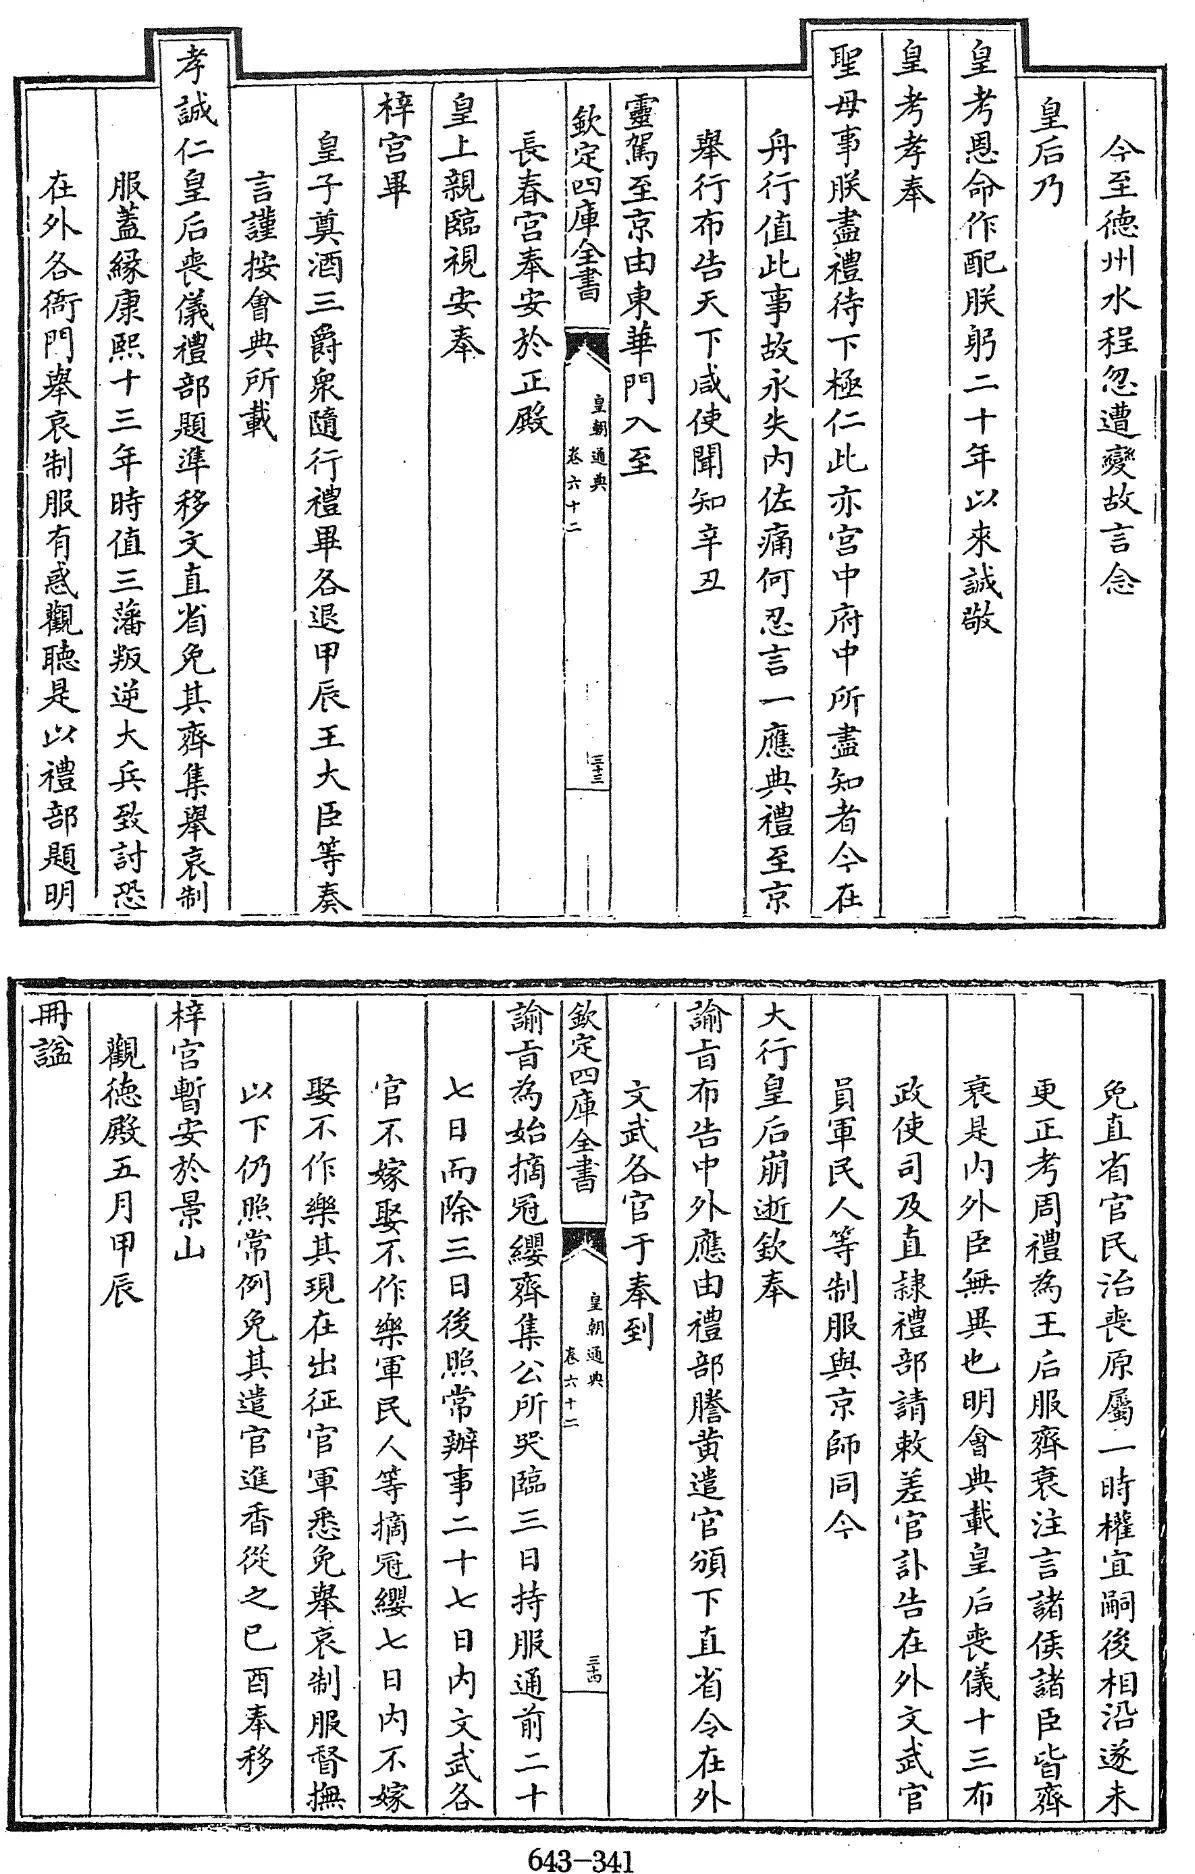 今至德州水程忽遭變故言念
皇后乃
皇考恩命作配朕躬二十年以來誠敬
皇考孝奉
聖母事朕盡禮待下極仁此亦宮中府中所盡知者今在
舟行值此事故永失内佐痛何忍言一應典禮至京
舉行布告天下咸使聞知辛丑
靈駕至京由東華門入至
欽定四庫全書
皇朝通典
卷六十二
三十三
長春宮奉安於正殿
皇上親臨視安奉
梓宮畢
皇子奠酒三爵衆隨行禮畢各退甲辰王大臣等奏
言謹按會典所載
孝誠仁皇后喪儀禮部題準移文直省免其齊集舉哀制
服蓋緣康熙十三年時值三藩叛逆大兵致討恐
在外各衙門舉哀制服有惑觀聽是以禮部題明
免直省官民治喪原屬一時權宜嗣後相沿遂未
更正考周禮為王后服齊衰注言諸侯諸臣皆齊
衰是内外臣無異也明會典載皇后喪儀十三布
政使司及直隸禮部請敕差官訃告在外文武官
員軍民人等制服與京師同今
大行皇后崩逝欽奉
諭旨布告中外應由禮部謄黄遣官頒下直省令在外
文武各官于奉到
欽定四庫全書
皇朝通典
卷六十二
三十四
諭旨為始摘冠纓齊集公所哭臨三日持服通前二十
七日而除三日後照常辦事二十七日内文武各
官不嫁娶不作樂軍民人等摘冠纓七日内不嫁
娶不作樂其現在出征官軍悉免舉哀制服督撫
以下仍照常例免其遣官進香從之己酉奉移
梓宮暫安於景山
觀德殿五月甲辰
冊諡
643-341